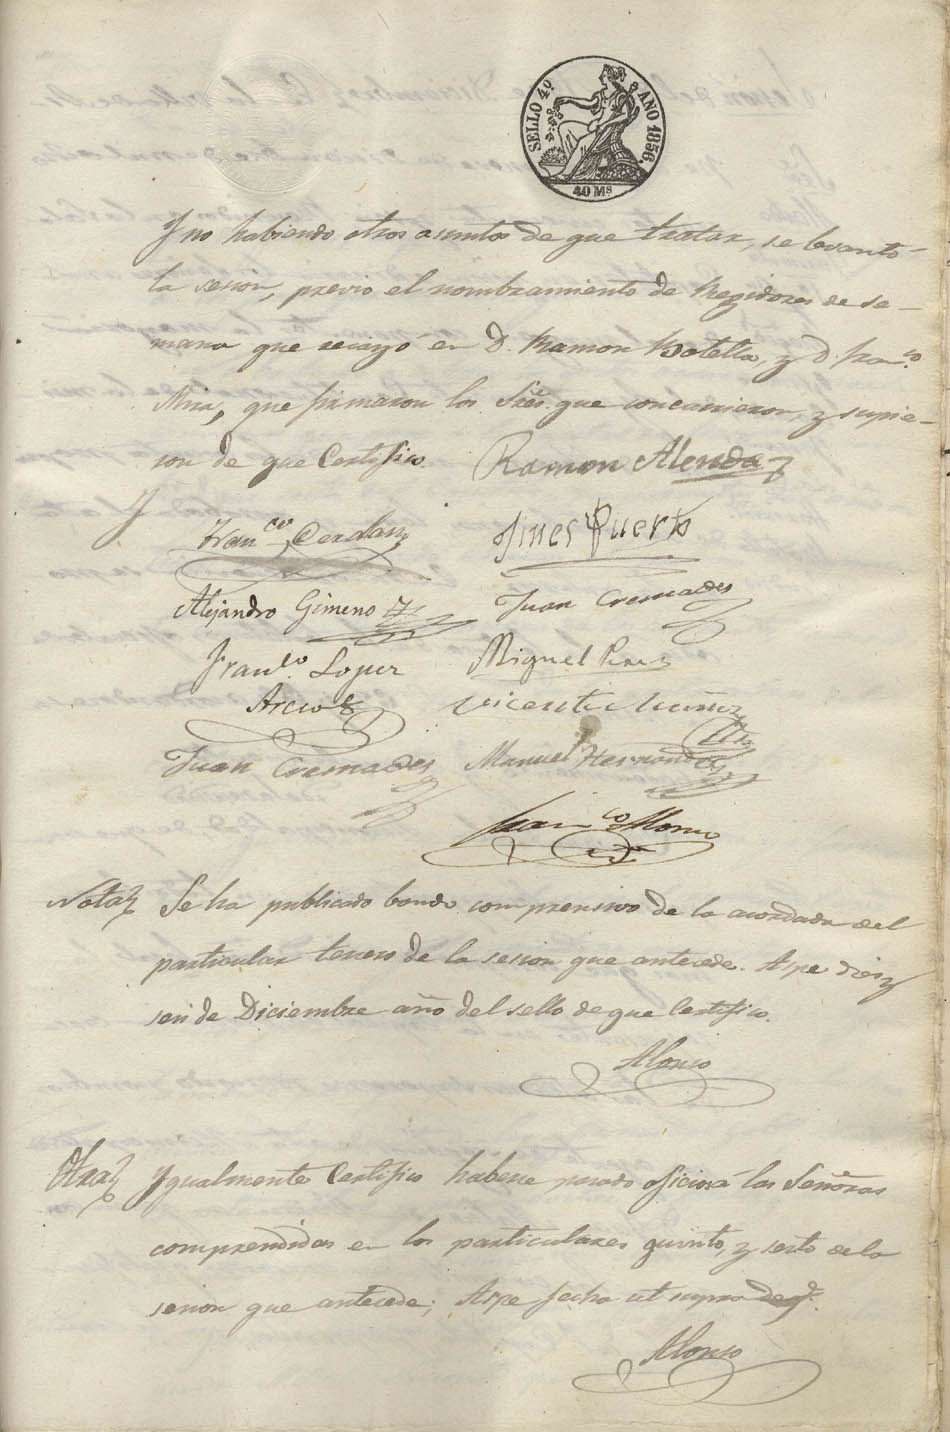 SELLO 4º AÑO 1856.
40 Ms
Y no habiendo otros asuntos de que tratar, se levantó
la sesion, previo el nombramiento de Regidores de se-
mana que recayó en D. Ramon Botella, y D. Franco.
Mira, que firmaron los Sres. que concurrieron, y supie-
ron de que Certifico.
Ramon Alenda
Franco Cerdan
Gines Puerto
Alejandro Gimeno
Juan Cremades
Franco Lopez
Miguel Perez
Arcios
Vicente Muñoz
Juan Cremades
Manuel Hernandez
Franco Alonso
Nota Se ha publicado bando comprensivo de lo acordado del
particular tercero de la sesion que antecede. Aspe diez y
seis de Diciembre año del sello de que Certifico.
Alonso
Otra Ygualmente Certifico háberse pasado oficios á los Señores
comprendidos en los particulares quinto, y sesto de la
sesion que antecede; Aspe fecha ut supra
Alonso